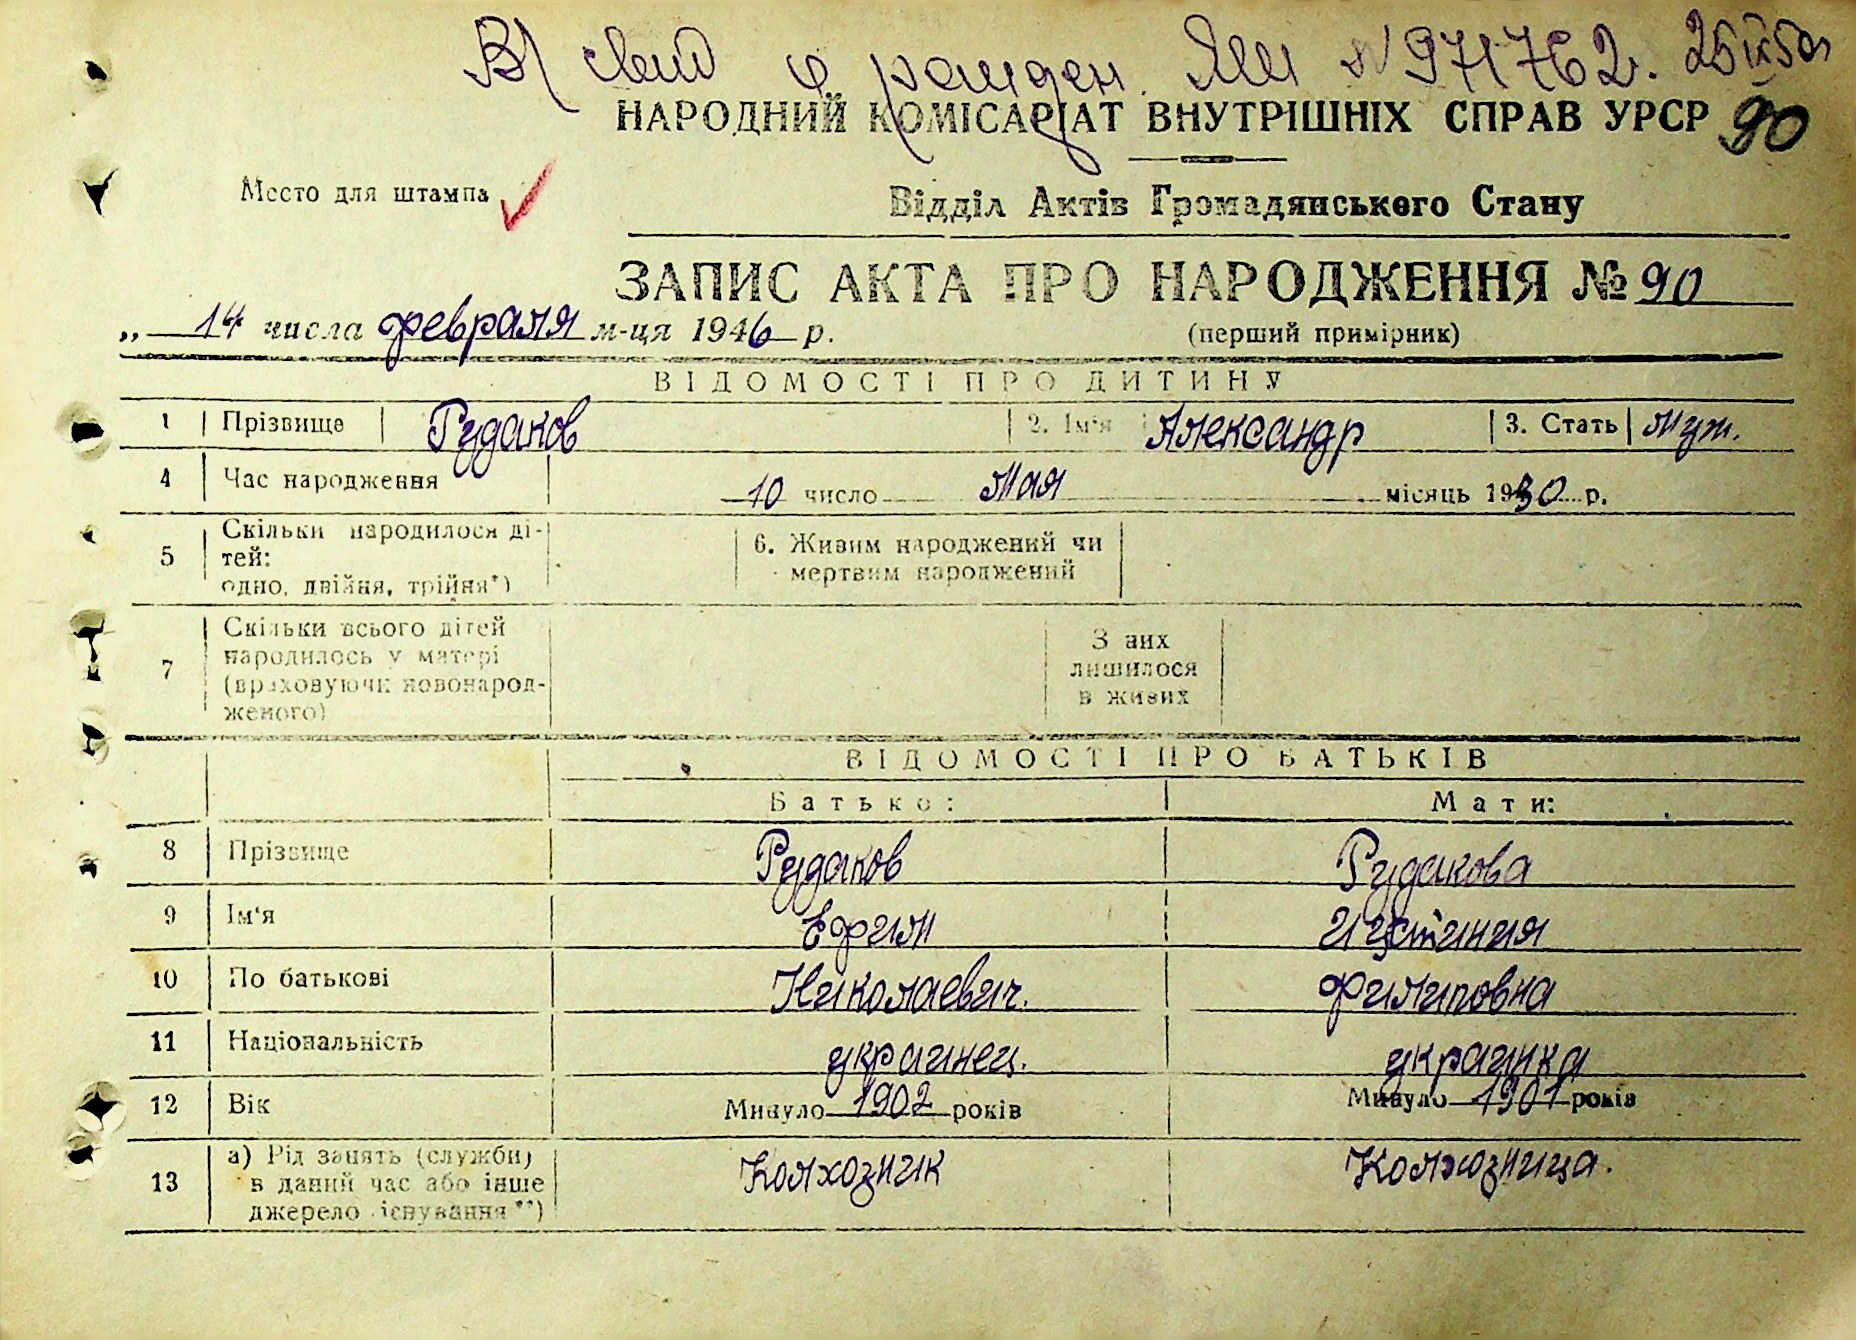 В/ свид о рожден. ЯМ №971762. 25 IX 50г
НАРОДНИЙ КОМІСАРІАТ ВНУТРІШНІХ СПРАВ УРСР 90
Место для штампа
Відділ Актів Громадянського Стану
ЗАПИС АКТА ПРО НАРОДЖЕННЯ № 90
„ 14 числа февраля м-ця 1946 р. (перший примірник)
ВІДОМОСТІ ПРО ДИТИНУ
1 Прізвище Рудаков 2. Ім'я Александр 3. Стать муж.
4 Час народження 10 число Мая місяць 1930 р.
5 Скільки народилося ді-
тей:
одно, двійня, трійня*)
6. Живим народжений чи
мертвим народжений
7 Скільки всього дітей
народилось у матері
(враховуючи новонарод-
женого)
З них
лишилося
в живих
ВІДОМОСТІ ПРО БАТЬКІВ
Батько: Мати:
8 Прізвище Рудаков Рудакова
9 Ім'я Ефим Иустиния
10 По батькові Николаевич. Филиповна
11 Національність украинец. украинка
12 Вік Минуло 1902 років Минуло 1901 років
13 а) Рід занять (служби)
в даний час або інше
джерело існування**)
Колхозник Колхозница.